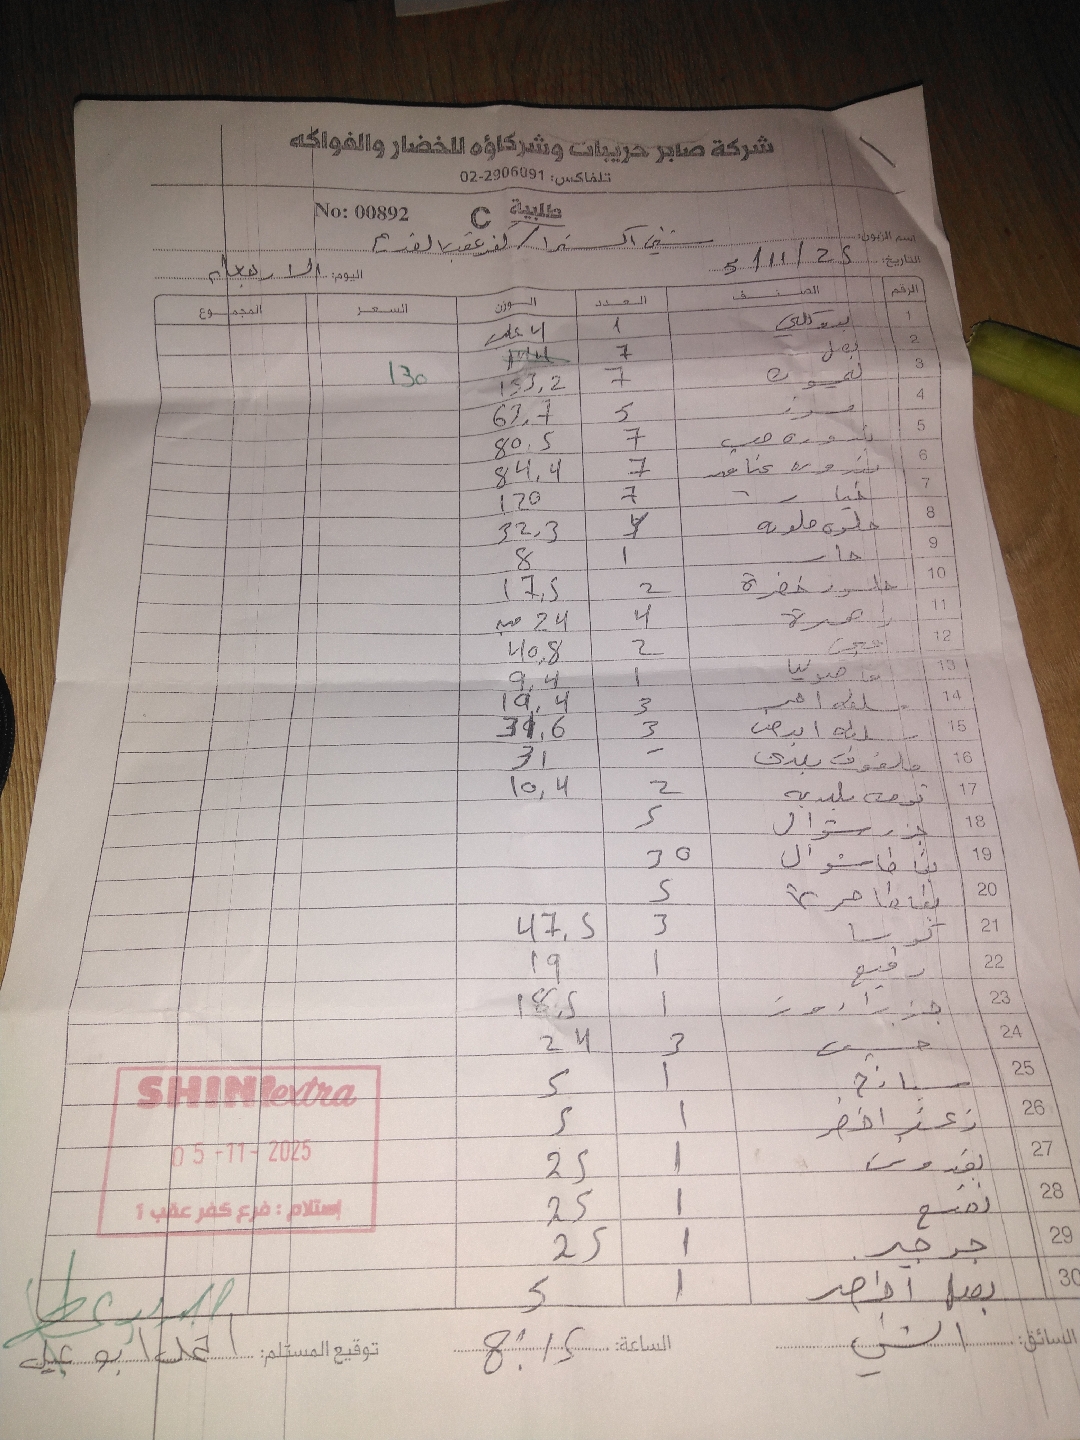 شركة صابر حريبات وشركاؤه للخضار والفواكه
تلفاكس: 02-2906091
No: 00892 C طلبية
اسم الزبون: شني اكسترا / كفر عقب القديم
التاريخ: 5/11/25 اليوم: الاربعاء
الرقم الصنف العدد الوزن السعر المجموع
1 بروكلي 1 4
2 بصل 7
3 ليمون 7 153,2 130
4 موز 5 63,7
5 بندوره حب 7 80,5
6 بندوره عناقيد 7 84,4
7 خيار 7 120
8 حلوه ملونه 32,3
9 حار 1 8
10 خضرة 2 17,5
11 زهرة 4 24
12 2 40,8
13 فاصوليا 1 9,4
14 احمر 3 19,4
15 ابيض 3 31,6
16 ملفوف بلدي - 31
17 تومه بلديه 2 10,4
18 جزر شوال 5
19 بطاطا شوال 30
20 بطاطا 5
21 كوسا 3 47,5
22 رفيع 1 19
23 جزر 1 18,5
24 خس 3 24
25 سبانخ 1 5
26 زعتر اخضر 1 5
27 بقدونس 1 25
28 نعنع 1 25
29 جرجير 1 25
30 بصل اخضر 1 5
SHINI extra
05-11-2025
إستلام : فرع كفر عقب 1
السائق: الساعة: 8:15 توقيع المستلم: